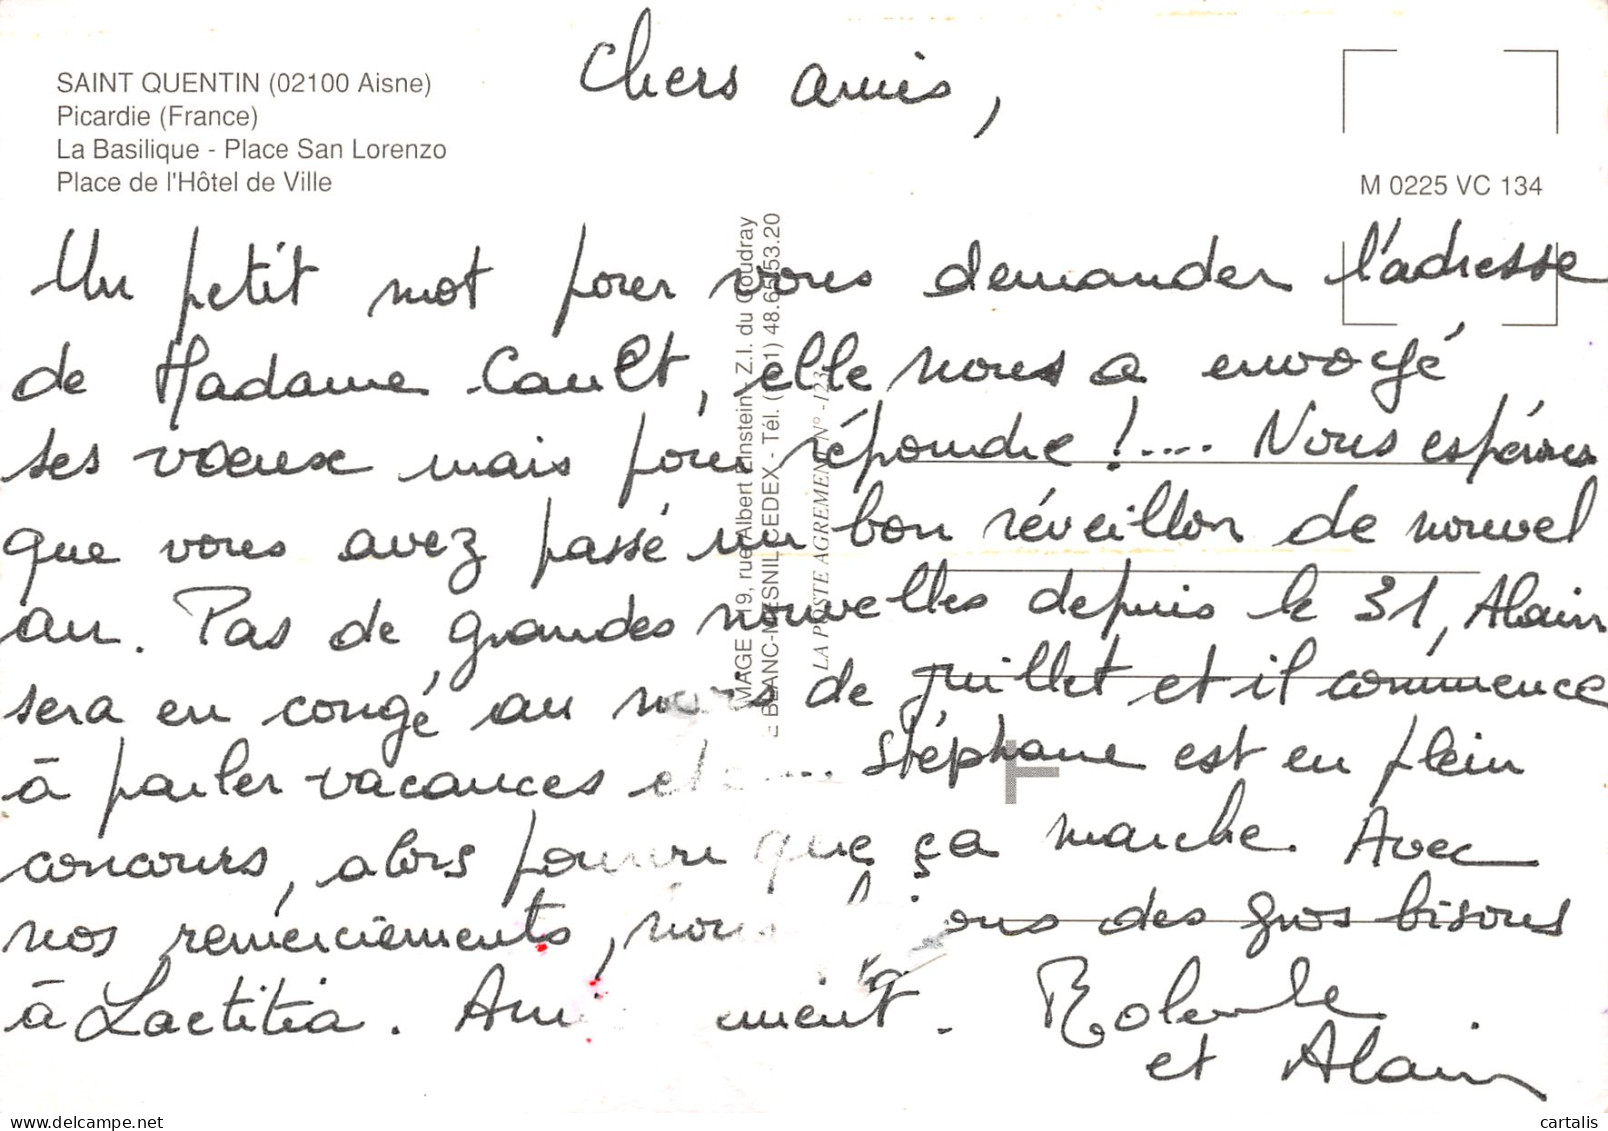 SAINT QUENTIN (02100 Aisne)
Picardie (France)
La Basilique - Place San Lorenzo
Place de l'Hôtel de Ville
M 0225 VC 134
MAGE 19, rue Albert Einstein, Z.I. du Coudray
BLANC-MESNIL CEDEX - Tél. ( 1) 48.65.53.20
LA POSTE AGREMENT N° -123
Chers amis,
Un petit mot pour vous demander l'adresse
de Madame Cault, elle nous a envoyé
ses voeux mais pour répondre !.... Nous espérons
que vous avez passé un bon réveillon de nouvel
an. Pas de grandes nouvelles depuis le 31, Alain
sera en congé au mois de juillet et il commence
à parler vacances etc.... Stéphane est en plein
concours, alors que ça marche. Avec
nos remerciements, nous des gros bisous
à Laetitia. .
et Alain
cartalis